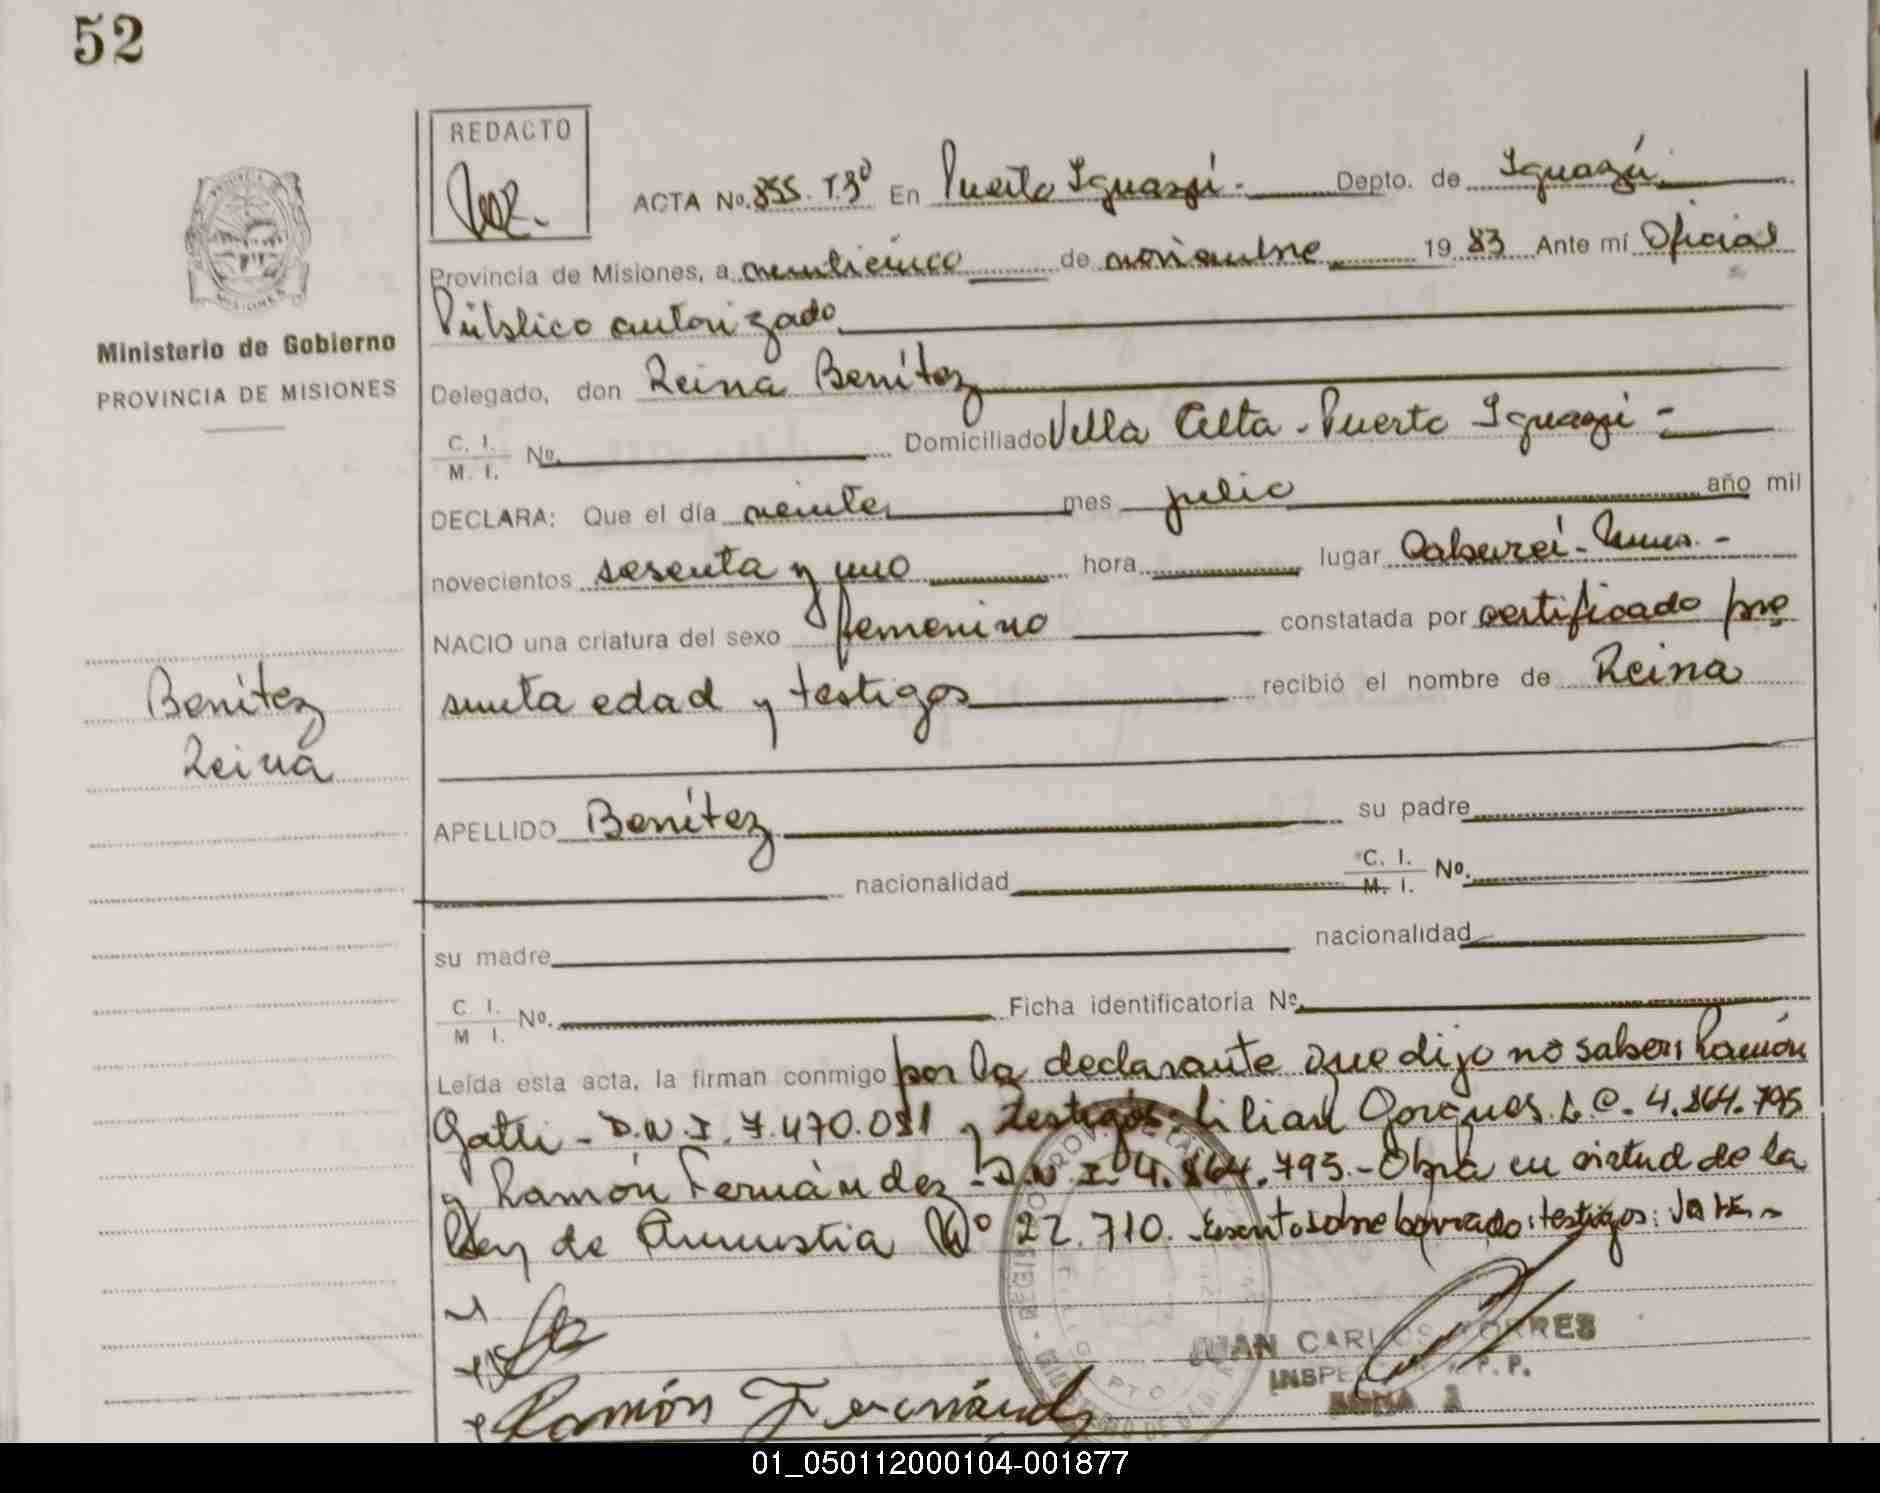 52
REDACTO
ACTA No. 855. T.3º En Puerto Iguazú - Depto. de Iguazú
Provincia de Misiones, a veinticinco de noviembre 1983 Ante mí Oficial
Público autorizado
Ministerio de Gobierno
PROVINCIA DE MISIONES
Delegado, don Reina Benítez
C. I.
M. I. Nº. Domiciliado Villa Alta - Puerto Iguazú -
DECLARA: Que el día veinte mes julio año mil
novecientos sesenta y uno hora lugar
NACIO una criatura del sexo femenino constatada por certificado pre
sunta edad y testigos recibió el nombre de Reina
Benítez
Reina
APELLIDO Benítez su padre
nacionalidad C. I.
M. I. Nº.
su madre nacionalidad
C. I.
M I. Nº. Ficha identificatoria Nº.
Leída esta acta, la firman conmigo por la declarante que dijo no saber: Ramón
D.N.I. 7.470.081 y testigos: Lilian L.C. 4.864.795
y Ramón Fernández - D.N.I. 4.864.793.- Obra en virtud de la
Ley de Amnistia Nº 22.710. Escrito sobre borrado: testigos: Vale.-
JUAN CARLOS TORRES
ZONA
Ramón Fernández
01_050112000104-001877